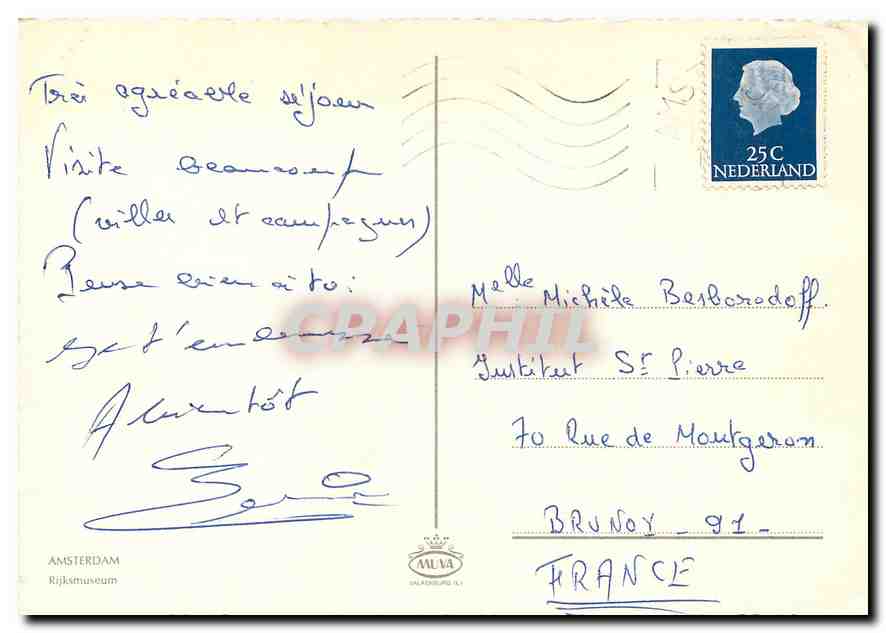 Très agréable séjour
Visite beaucoup
(villes et campagnes)
Pense bien à toi
et t'embrasse
A bientôt
AMSTERDAM
Rijksmuseum
MUVA
VALKENBURG (L.)
25C
NEDERLAND
Melle Michèle Besborodoff.
Institut St Pierre
70 Rue de Montgeron
BRUNOY - 91 -
FRANCE
CPAPHIL